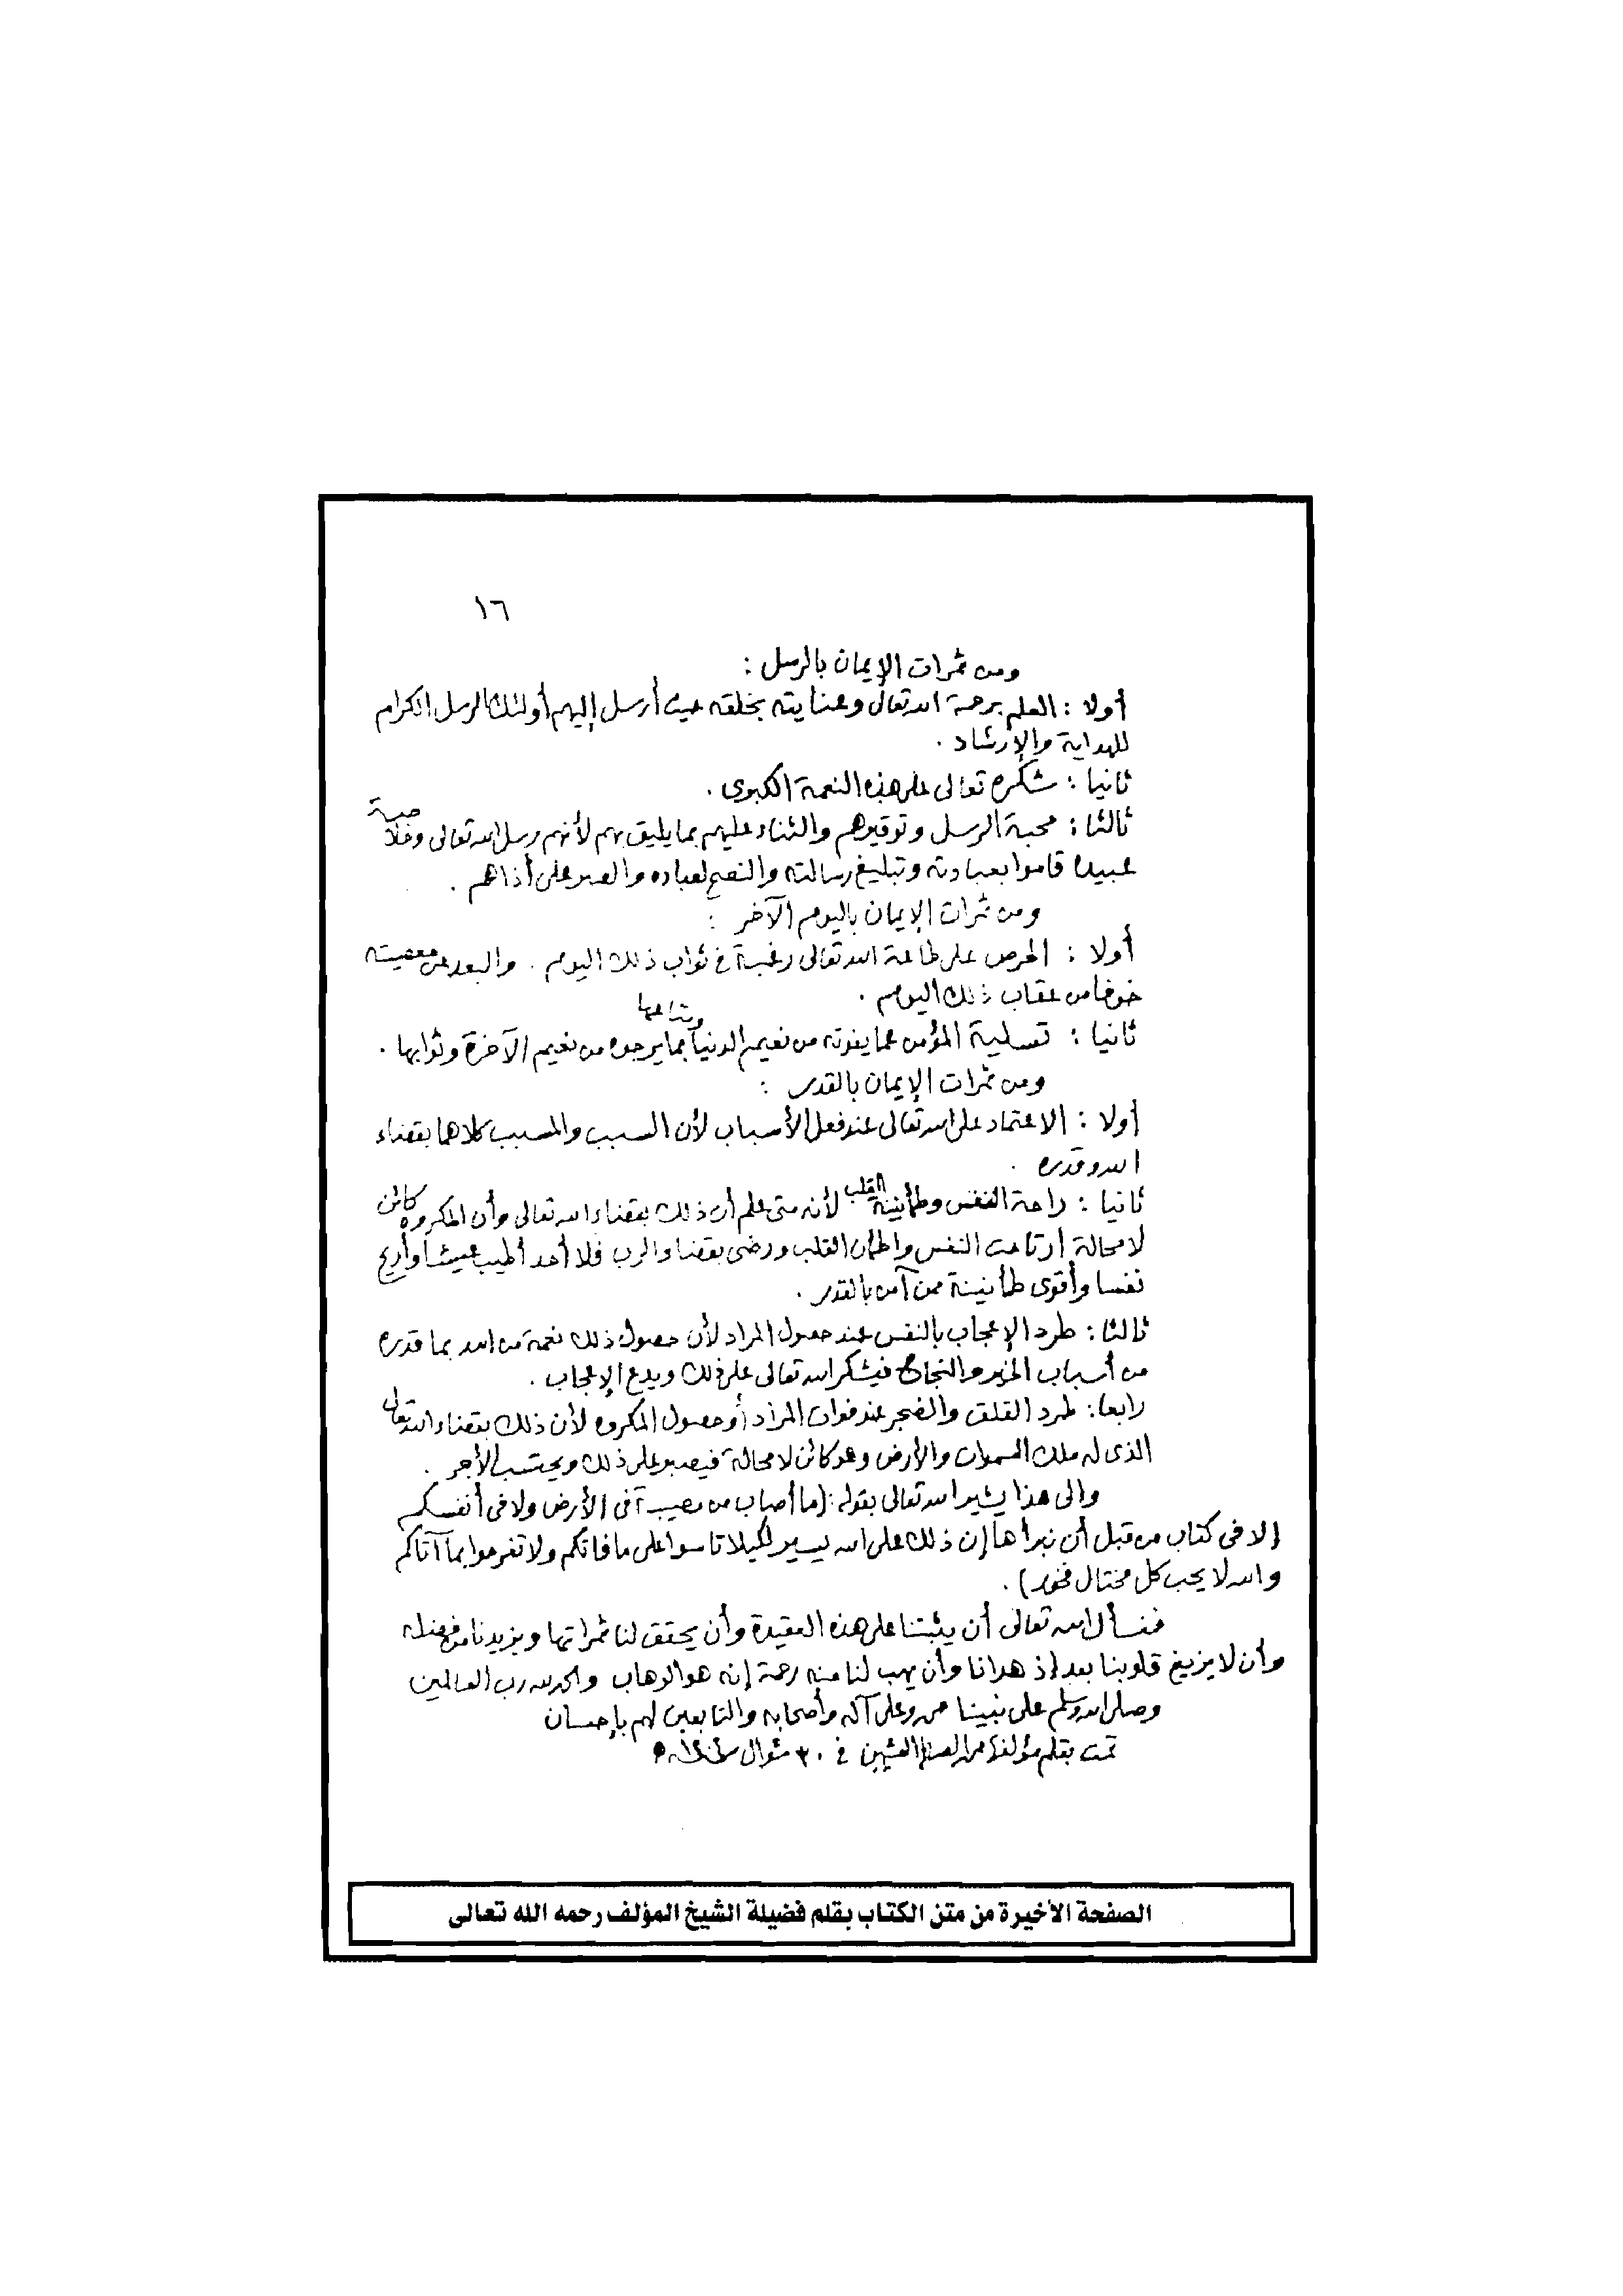 ١٦
ومن ثمرات الإيمان بالرسل :
أولا : العلم برحمة الله تعالى وعنايته بخلقه حيث أرسل إليهم أولئك الرسل الكرام
للهداية والإرشاد .
ثانيا : شكره تعالى على هذه النعمة الكبرى .
ثالثا : محبة الرسل وتوقيرهم والثناء عليهم بما يليق بهم لأنهم رسل الله تعالى وخلاصة
عبيده قاموا بعبادته وتبليغ رسالته والنصح لعباده والصبر على أذاهم .
ومن ثمرات الإيمان باليوم الآخر :
أولا : الحرص على طاعة الله تعالى رغبة في ثواب ذلك اليوم . والبعد عن معصيته
خوفا من عقاب ذلك اليوم .
ثانيا : تسلية المؤمن عما يفوته من نعيم الدنيا ومتاعها بما يرجوه من نعيم الآخرة وثوابها .
ومن ثمرات الإيمان بالقدر :
أولا : الاعتماد على الله تعالى عند فعل الأسباب لأن السبب والمسبب كلاهما بقضاء
الله وقدره .
ثانيا : راحة النفس وطمأنينة القلب لأنه متى علم أن ذلك بقضاء الله تعالى وأن المكروه كائن
لا محالة ارتاحت النفس واطمأن القلب ورضي بقضاء الرب فلا أحد أطيب عيشا وأريح
نفسا وأقوى طمأنينة ممن آمن بالقدر .
ثالثا : طرد الإعجاب بالنفس عند حصول المراد لأن حصول ذلك نعمة من الله بما قدره
من أسباب الخير والنجاح فيشكر الله تعالى على ذلك ويدع الإعجاب .
رابعا : طرد القلق والضجر عند فوات المراد أو حصول المكروه لأن ذلك بقضاء الله تعالى
الذى له ملك السموات والأرض وهو كائن لا محالة فيصبر على ذلك ويحتسب الأجر .
والى هذا يشير الله تعالى بقوله : (ما أصاب من مصيبة في الأرض ولا فى أنفسكم
إلا فى كتاب من قبل أن نبرأها إن ذلك على الله يسير لكيلا تاسوا على ما فاتكم ولا تفرحوا بما آتاكم
والله لا يحب كل مختال فخور) .
فنسأل الله تعالى أن يثبتنا على هذه العقيدة وأن يحقق لنا ثمراتها ويزيدنا من فضله
وأن لا يزيغ قلوبنا بعد إذ هدانا وأن يهب لنا منه رحمة إنه هو الوهاب والحمد لله رب العالمين
وصلى الله وسلم على نبينا محمد وعلى آله وأصحابه والتابعين لهم بإحسان
تمت بقلم مؤلفها محمد الصالح العثيمين في ٣٠ شوال سنة ١٤٠٤ هـ
الصفحة الأخيرة من متن الكتاب بقلم فضيلة الشيخ المؤلف رحمه الله تعالى